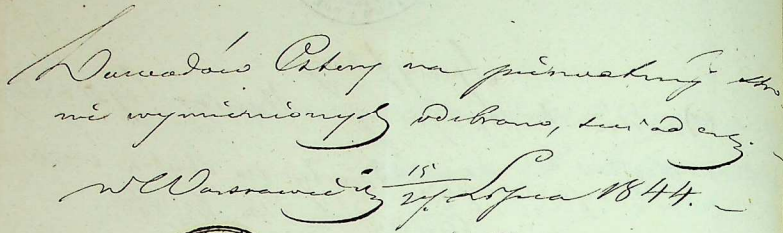 Dowodów Cztery na pierwotnéj stro
nie wymienionych odebrano, świadczy.
w Warszawie d. 15/27 Lipca 1844.